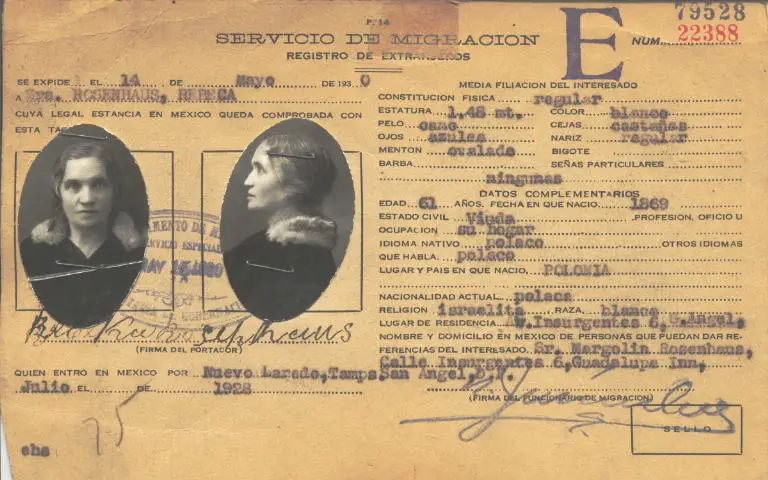 F. 14
SERVICIO DE MIGRACION
REGISTRO DE EXTRANJEROS
E
79528
NUM. 22388
SE EXPIDE EL 14 DE Mayo DE 1930
A Sra. ROSENHAUS, REBECA
CUYA LEGAL ESTANCIA EN MEXICO QUEDA COMPROBADA CON
ESTA TA
MAY 15 1930
(FIRMA DEL PORTADOR)
QUIEN ENTRO EN MEXICO POR Nuevo Laredo, Tamps
Julio EL DE 1928
75
ehs
MEDIA FILIACION DEL INTERESADO
CONSTITUCION FISICA regular
ESTATURA 1,48 mt. COLOR blanco
PELO cano CEJAS castañas
OJOS azules NARIZ regular
MENTON ovalado BIGOTE
BARBA SEÑAS PARTICULARES
ningunas
DATOS COMPLEMENTARIOS
EDAD 61 AÑOS. FECHA EN QUE NACIO. 1869
ESTADO CIVIL Viuda .PROFESION, OFICIO U
OCUPACION su hogar
IDIOMA NATIVO polaco OTROS IDIOMAS
QUE HABLA. polaco
LUGAR Y PAIS EN QUE NACIO. POLONIA
NACIONALIDAD ACTUAL. polaca
RELIGION israelita RAZA. blanca
LUGAR DE RESIDENCIA Av. Insurgentes 6, S. Angel,
NOMBRE Y DOMICILIO EN MEXICO DE PERSONAS QUE PUEDAN DAR RE-
FERENCIAS DEL INTERESADO. Sr. Margolin Rosenhaus,
Calle Insurgentes 6, Guadalupe Inn,
San Angel, D.F.
(FIRMA DEL FUNCIONARIO DE MIGRACION)
SELLO